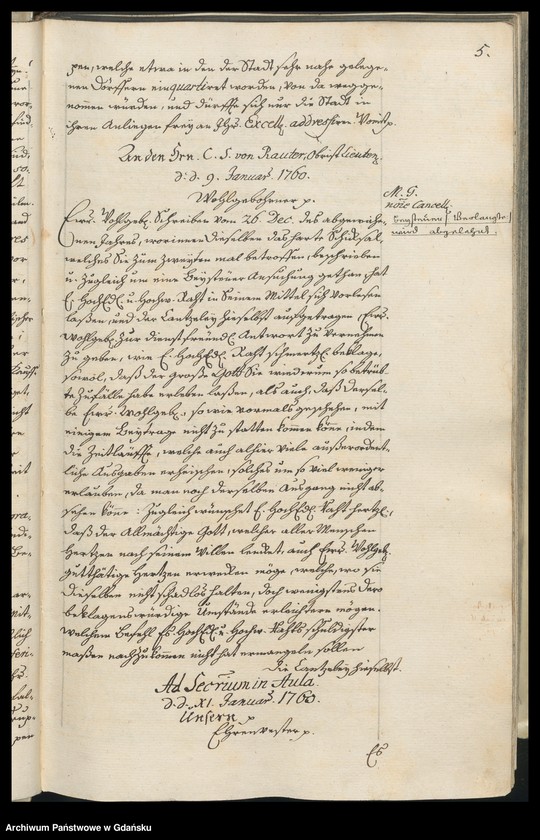 5.
pen, welche etwa in den der Stadt sehr nahe gelege-
nen Dörffern einquartiret worden, von da wegge-
nommen würden, und dürffte sich nur die Stadt in
ihren Anliegen frey an Ihr. Excell. addressiren.
An den Hrn. C. S. von Rautter, Obrist Lieuten.
d. d. 9. Januar. 1760.
Wohlgebohrner p.
M. G.
noïe Cancell.
Beysteuer Verlangte
wird abgelehnt.
Ewr. Wohlgeb. Schreiben vom 26. Dec. des abgewiche-
nen Jahres, worinnen dieselben das harte Schiksal,
welches Sie zum zweyten mal betroffen, beschrieben
u. zugleich um eine Beysteuer Ansuchung gethan, hat
E. HochEdl. u. Hochw. Raht in Seinem Mittel sich vorlesen
laßen, und der Cantzeley hieselbst aufgetragen Ewr.
Wohlgeb. zur dienstfreundl. Antwort zu vernehmen
zu geben, wie E. HochEdl. Raht schmertzl. beklage,
sowol, daß der große Gott Sie wiederum so betrüb-
te Zufälle habe erleben laßen, als auch, daß dersel-
be Ewr. Wohlgeb., so wie vormals geschehen, mit
einigem Beytrage nicht zu statten komen köne, indem
die Zeitläuffte, welche auch alhier viele außerordent-
liche Ausgaben erheischen, solches um so viel weniger
erlauben, da man noch derselben Ausgang nicht ab-
sehen köne: Zugleich wünschet E. HochEdl. Raht hertzl.,
daß der Allmächtige Gott, welcher aller Menschen
Hertzen nach seinem Willen lenket, auch Ewr. Wohlgeb.
gutthätige Hertzen erwecken möge, welche, wo sie
dieselben nicht schadlos halten, doch wenigstens dero
beklagenswürdige Umstände erleichtern mögen.
Welchem Befehl Es. HochEdl. u. Hochw. Rahts schuldigster
maßen nachzukomen nicht hat ermangeln sollen
Die Cantzeley hieselbst.
Ad Secrium in Aula.
d. d. XI. Januar. 1760.
Unsern p
Ehrenvester p.
Es
Archiwum Państwowe w Gdańsku